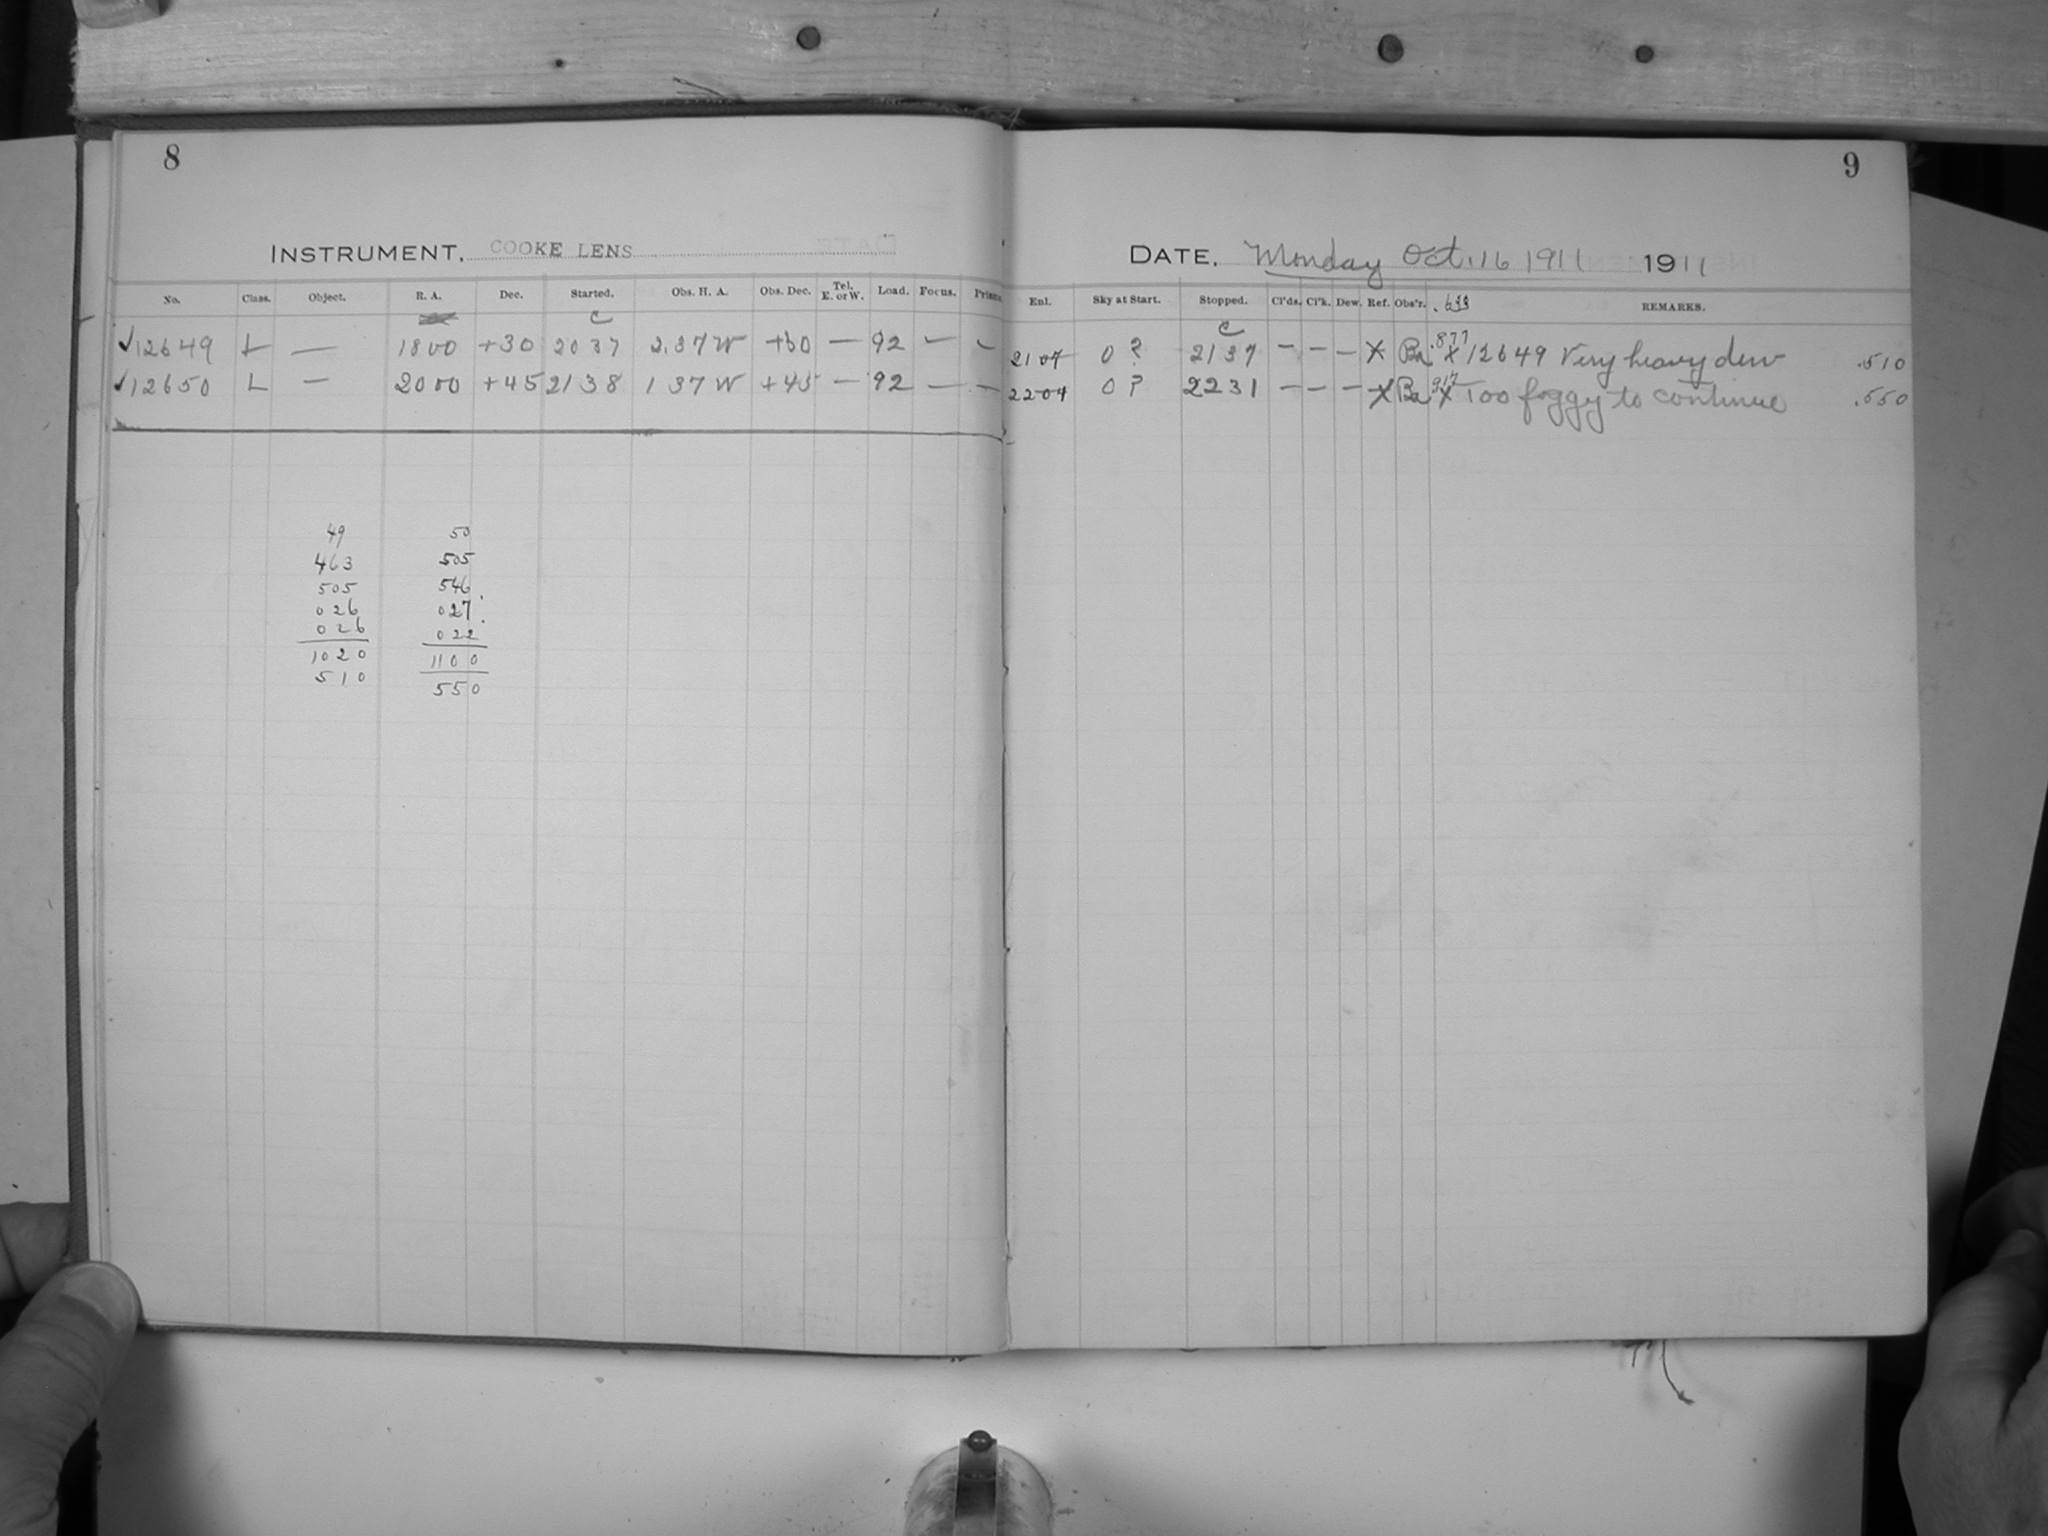 8
INSTRUMENT. COOKE LENS
No. Class. Object. R. A. Dec. Started. Obs. H. A. Obs. Dec. Tel. E. or W. Load. Focus. Prism
c
✓12649 L — 1800 +30 2037 2.37 W +30 — 92 — —
✓12650 L — 2000 +45 2138 1 37 W +45 — 92 — —
49 50
463 505
505 546.
026 027.
026 022
1020 1100
510 550
9
DATE. Monday Oct. 16 1911 1911
Enl. Sky at Start. Stopped. Cl'ds. Cl'k. Dew. Ref. Obs'r. REMARKS.
c
2107 0 ? 2137 — — — X Ba .877 X 12649 Very heavy dew .510
2204 0 ? 2231 — — — X Ba 917 X Too foggy to continue .550